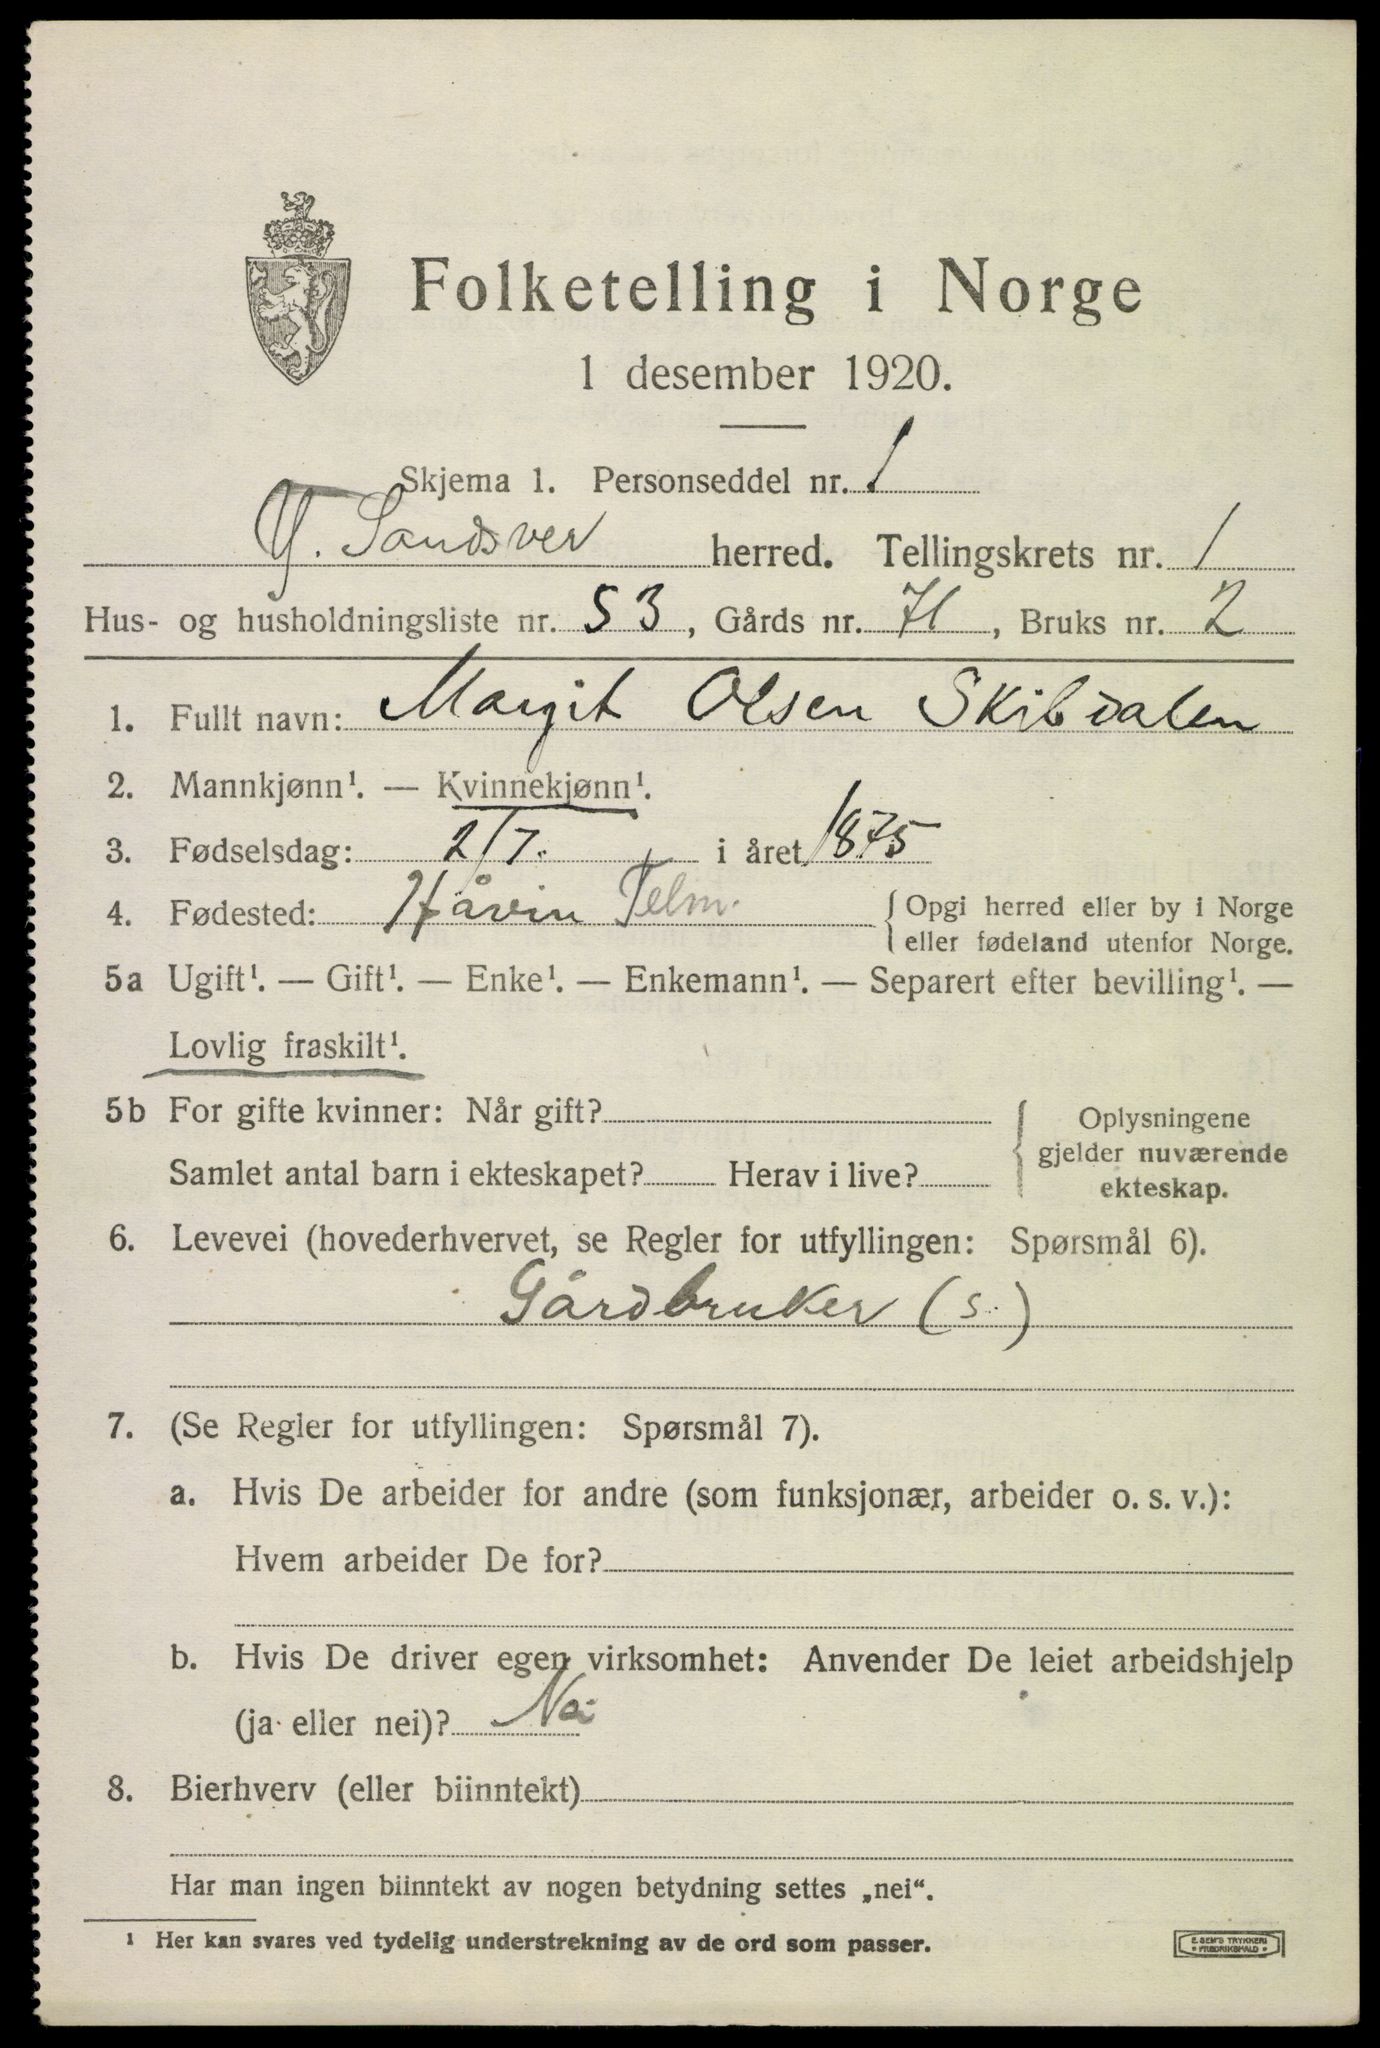 Folketelling i Norge
1 desember 1920.
Skjema 1. Personseddel nr. 1
Y. Sandsver herred. Tellingskrets nr. 1
Hus- og husholdningsliste nr. 53, Gårds nr. 71, Bruks nr. 2
1. Fullt navn: Margit Olsen Skibdalen
2. Mannkjønn¹. — Kvinnekjønn¹.
3. Fødselsdag: 2/7. i året 1875
4. Fødested: Håvin Telm. { Opgi herred eller by i Norge
eller fødeland utenfor Norge.
5a Ugift¹. — Gift¹. — Enke¹. — Enkemann¹. — Separert efter bevilling¹. —
Lovlig fraskilt¹.
5b For gifte kvinner: Når gift? { Oplysningene
gjelder nuværende
Samlet antal barn i ekteskapet? Herav i live? ekteskap.
6. Levevei (hovederhvervet, se Regler for utfyllingen: Spørsmål 6).
Gårdbruker (s.)
7. (Se Regler for utfyllingen: Spørsmål 7).
a. Hvis De arbeider for andre (som funksjonær, arbeider o. s. v.):
Hvem arbeider De for?
b. Hvis De driver egen virksomhet: Anvender De leiet arbeidshjelp
(ja eller nei)? Nei
8. Bierhverv (eller biinntekt)
Har man ingen biinntekt av nogen betydning settes „nei“.
¹ Her kan svares ved tydelig understrekning av de ord som passer.
E. SEM'S TRYKKERI
* FREDRIKSHALD *